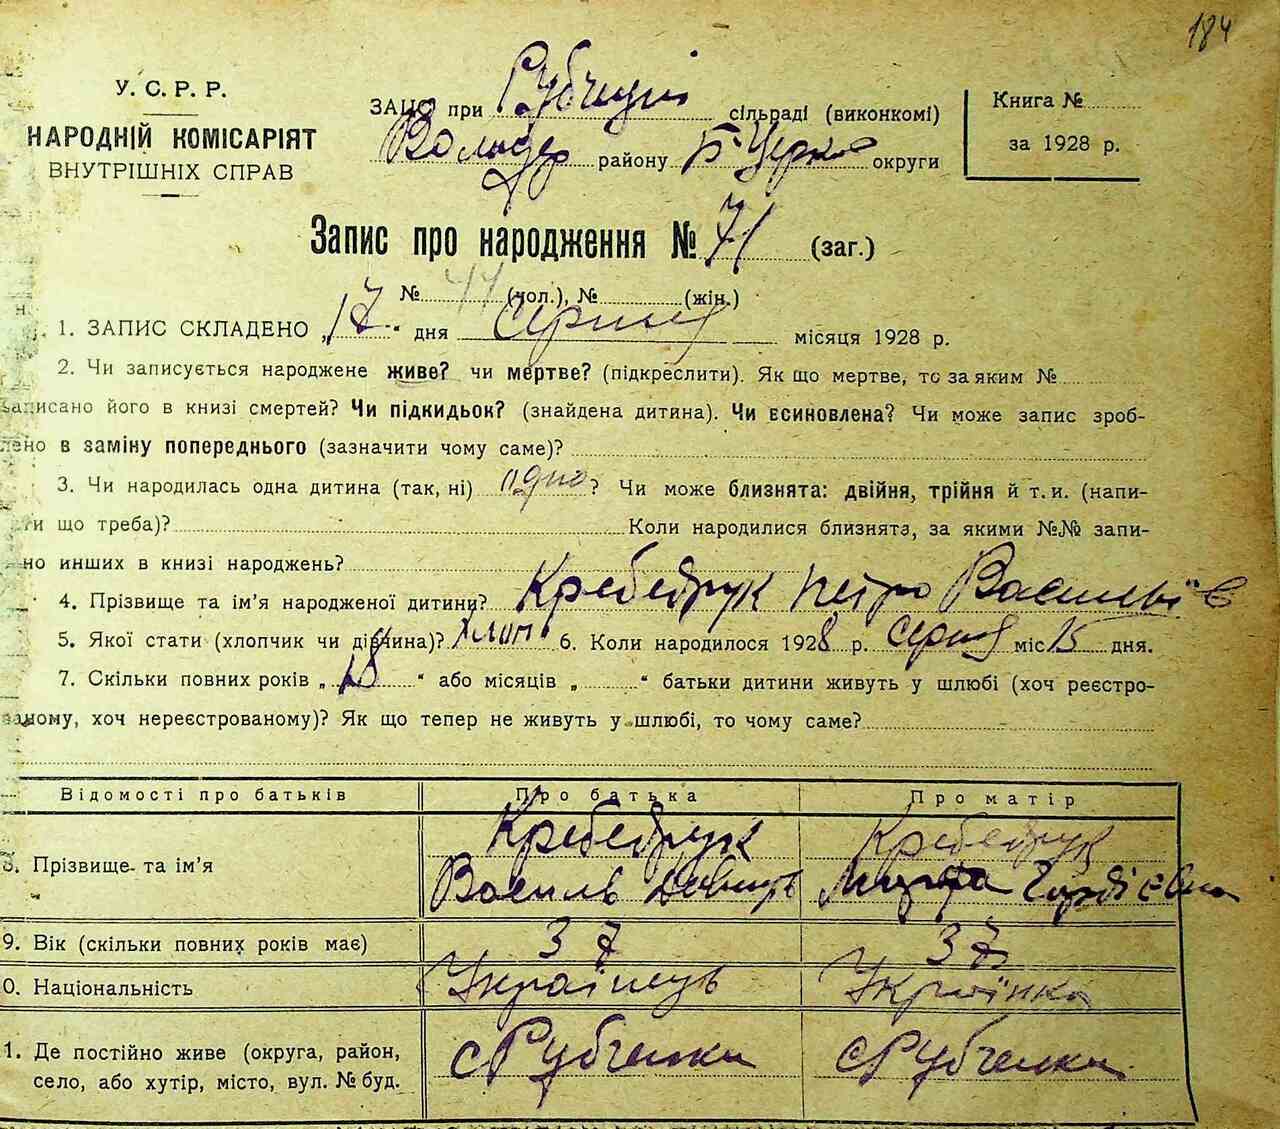 184
У. С. Р. Р.
НАРОДНІЙ КОМІСАРІЯТ
ВНУТРІШНІХ СПРАВ
ЗАПИС при сільраді (виконкомі)
району Б-Церк округи
Книга №
за 1928 р.
Запис про народження № 71 (заг.)
№ 41 (чол.), № (жін.)
1. ЗАПИС СКЛАДЕНО „ 17 “ дня Серпня місяця 1928 р.
2. Чи записується народжене живе? чи мертве? (підкреслити). Як що мертве, то за яким №
записано його в книзі смертей? Чи підкидьок? (знайдена дитина). Чи всиновлена? Чи може запис зроб-
лено в заміну попереднього (зазначити чому саме)?
3. Чи народилась одна дитина (так, ні) одно ? Чи може близнята: двійня, трійня й т. и. (напи-
ти що треба)? Коли народилися близнята, за якими №№ запи-
но инших в книзі народжень?
4. Прізвище та ім’я народженої дитини? Кребедрук Петро Васильїв
5. Якої стати (хлопчик чи дівчина)? хлоп 6. Коли народилося 1928 р. Серпня міс 15 дня.
7. Скільки повних років „ 18 “ або місяців „ “ батьки дитини живуть у шлюбі (хоч реєстро-
ваному, хоч нереєстрованому)? Як що тепер не живуть у шлюбі, то чому саме?
Відомості про батьків Про батька Про матір
8. Прізвище та ім’я Кребедрук Кребедрук
Василь
9. Вік (скільки повних років має) 37 37
0. Національність Українець Українка
1. Де постійно живе (округа, район, с Рубченки с Рубченки
село, або хутір, місто, вул. № буд.